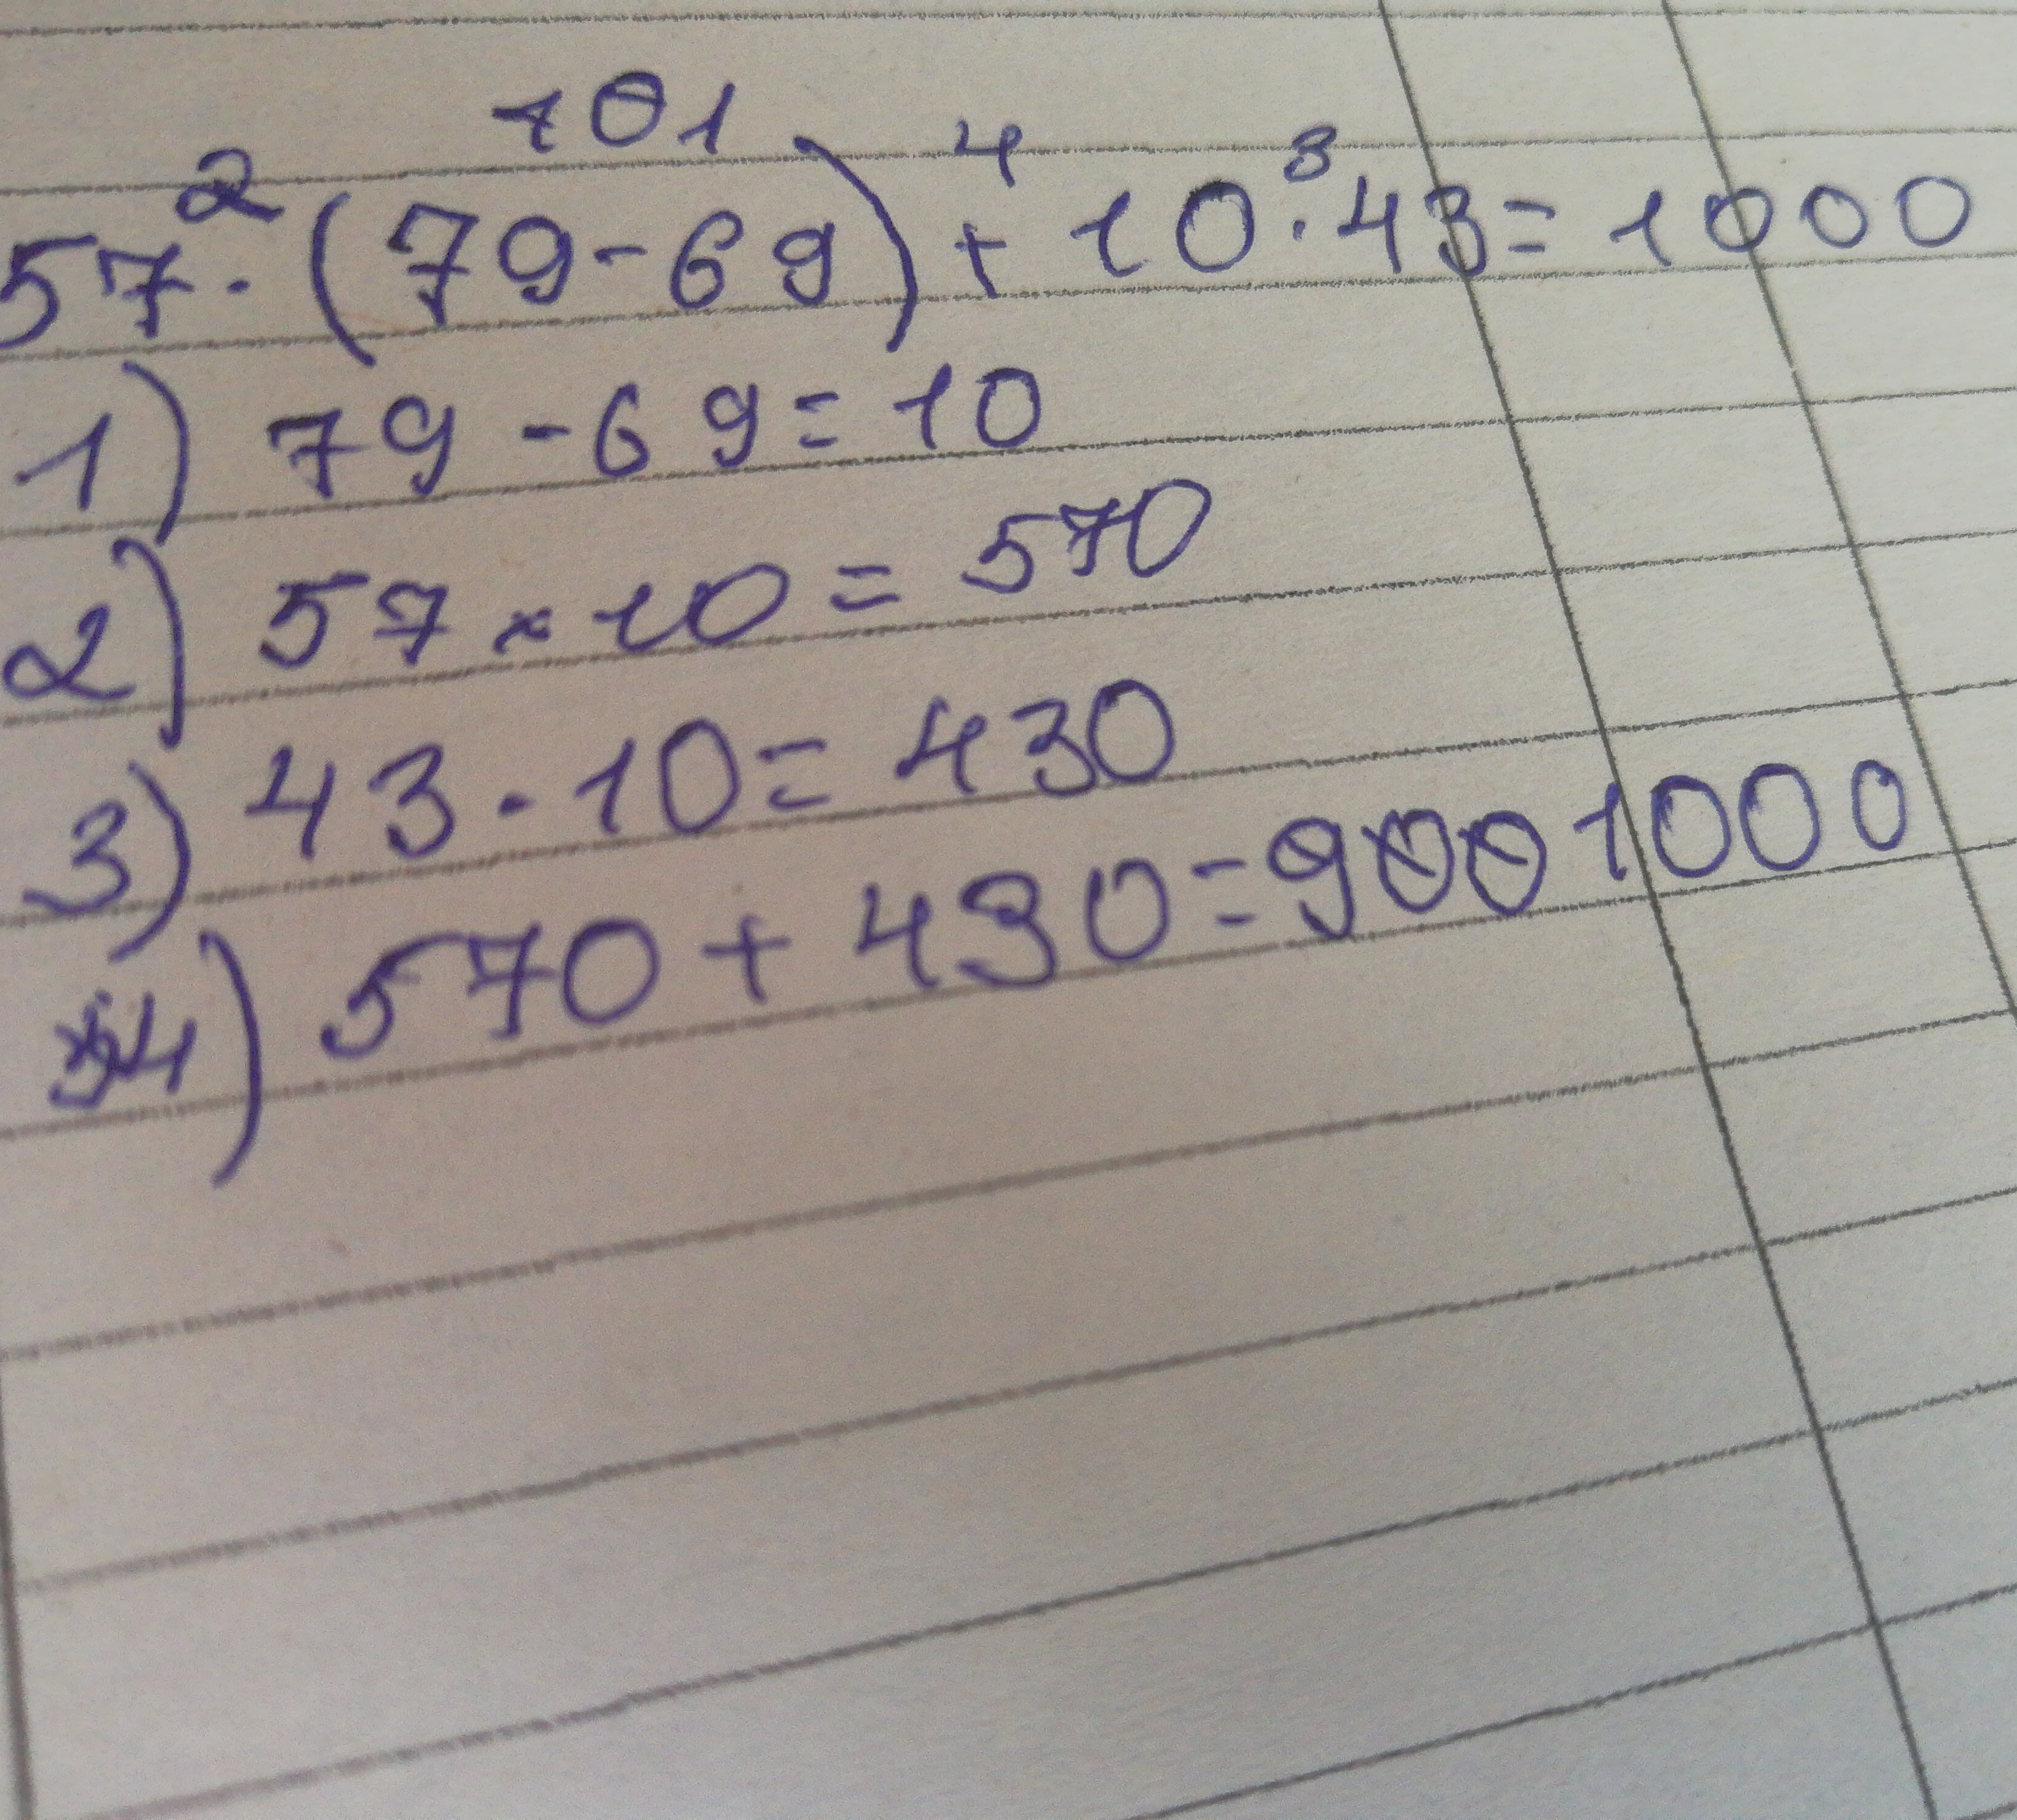 2 1 4 3
57·(79-69)+10·43=1000
1) 79-69=10
2) 57×10=570
3) 43·10=430
4) 570+430=1000